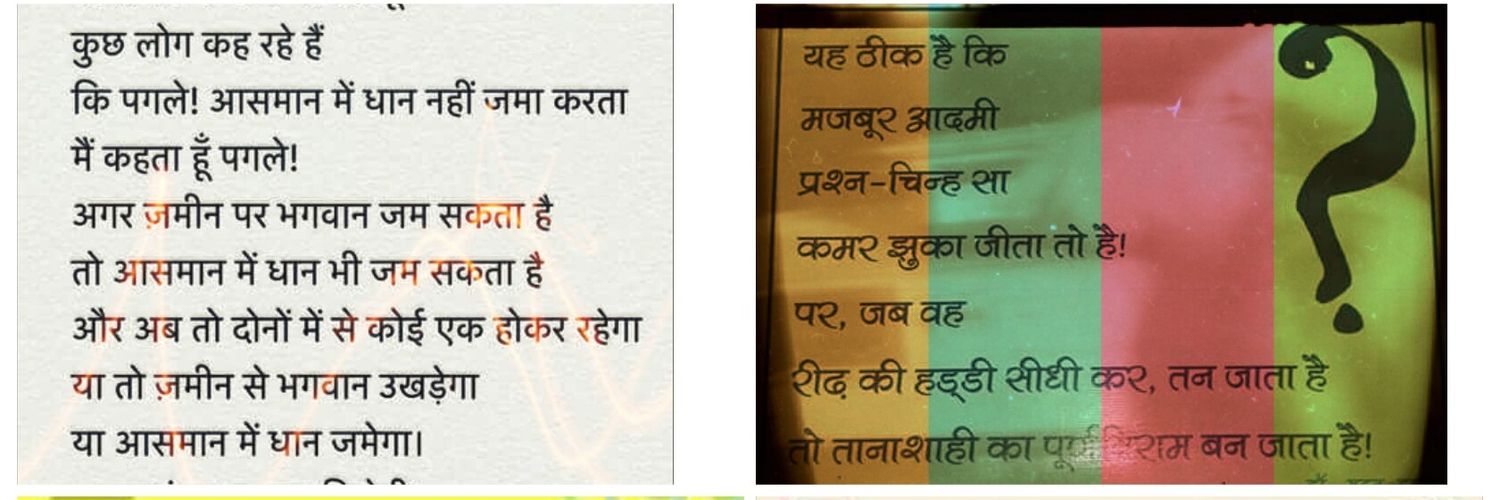 कुछ लोग कह रहे हैं
कि पगले! आसमान में धान नहीं जमा करता
मैं कहता हूँ पगले!
अगर ज़मीन पर भगवान जम सकता है
तो आसमान में धान भी जम सकता है
और अब तो दोनों में से कोई एक होकर रहेगा
या तो ज़मीन से भगवान उखड़ेगा
या आसमान में धान जमेगा।
यह ठीक है कि
मजबूर आदमी
प्रश्न-चिन्ह सा
कमर झुका जीता तो है!
पर, जब वह
रीढ़ की हड्डी सीधी कर, तन जाता है
तो तानाशाही का पूर्ण विराम बन जाता है!